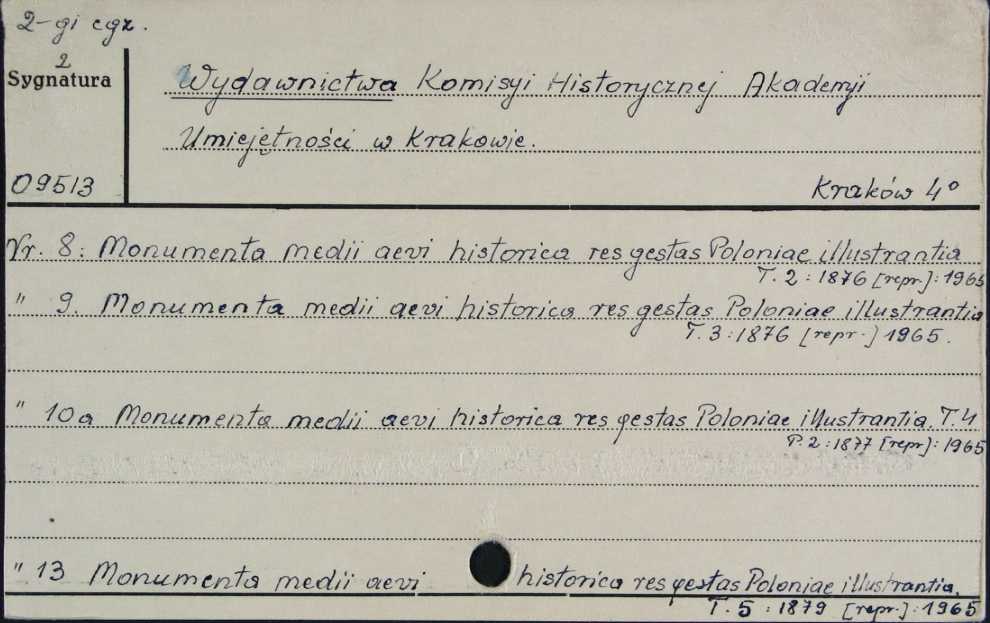 2-gi egz.
2
Sygnatura
Wydawnictwa Komisyi Historycznej Akademji
Umiejętności w Krakowie.
09513
Kraków 4°
Nr. 8: Monumenta medii aevi historica res gestas Poloniae illustrantia
T. 2 : 1876 [repr.] : 1965
" 9. Monumenta medii aevi historica res gestas Poloniae illustrantia
T. 3 : 1876 [repr.] 1965.
" 10a Monumenta medii aevi historica res gestas Poloniae illustrantia. T. 4
P. 2 : 1877 [repr.] : 1965
" 13 Monumenta medii aevi historica res gestas Poloniae illustrantia.
T. 5 : 1879 [repr.] : 1965